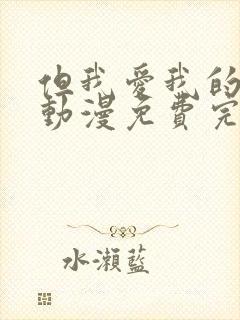 但我愛我的
動漫免費完
水瀨藍